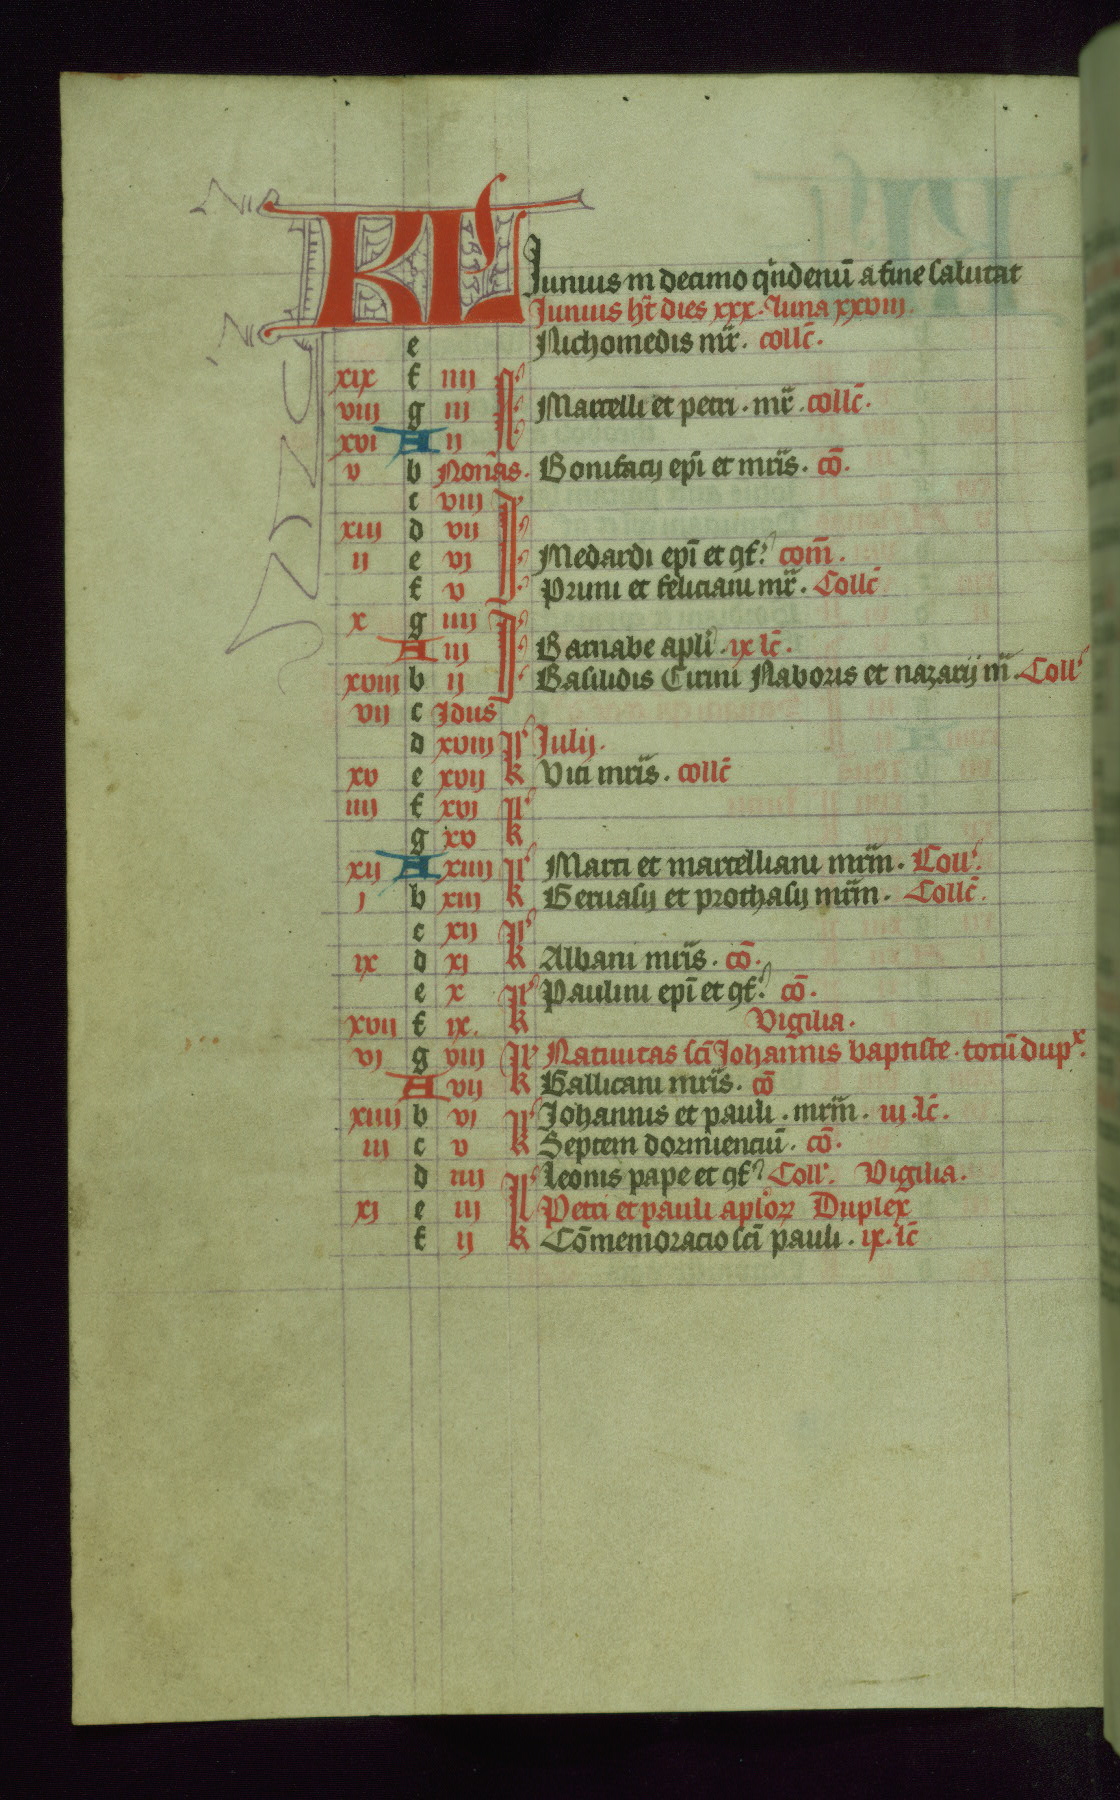 KL
Junius in decimo q̇ndenū a fine salutat
Junius hʒ̄t dies xxx. luna xxviij.
e Nichomedis mr̄. collc̄.
xix f iiij N̄
viij g iij Marcelli et petri. mr̄. collc̄.
xvi A ij
v b Nonas. Bonifacij ep̄i et mr̄is. cō.
c viij J
xiij d vij
ij e vj Medardi ep̄i et 9f? com̄.
f v Primi et feliciani mr̄. Collc̄
x g iiij J
A iij Barnabe apli. ix lc̄.
xviij b ij Basilidis Cirini Naboris et nazarij m̄. Coll'
vij c Jdus
d xviij kl' Julij.
xv e xvij k Viti mr̄is. collc̄
iiij f xvj kl'
g xv k
xij A xiiij kl' Marci et marcelliani mr̄m. Coll'.
j b xiij k Geruasij et prothasij mr̄m. Collc̄.
c xij kl'
ix d xj k Albani mr̄is. cō.
e x kl' Paulini ep̄i et 9f? cō.
xvij f ix. k Vigilia.
vj g viij kl' Natiuitas sc̄i Johannis baptiste. totū dupx.
A vij k Gallicani mr̄is. cō
xiiij b vj kl' Johannis et pauli. mr̄m. iij. lc̄.
iij c v k Septem dormienciū. cō.
d iiij kl' Leonis pape et 9f? Coll'. Vigilia.
xj e iij kl Petri et pauli aploꝝ Duplex
f ij k Cōmemoracio sc̄i pauli. ix. lc̄